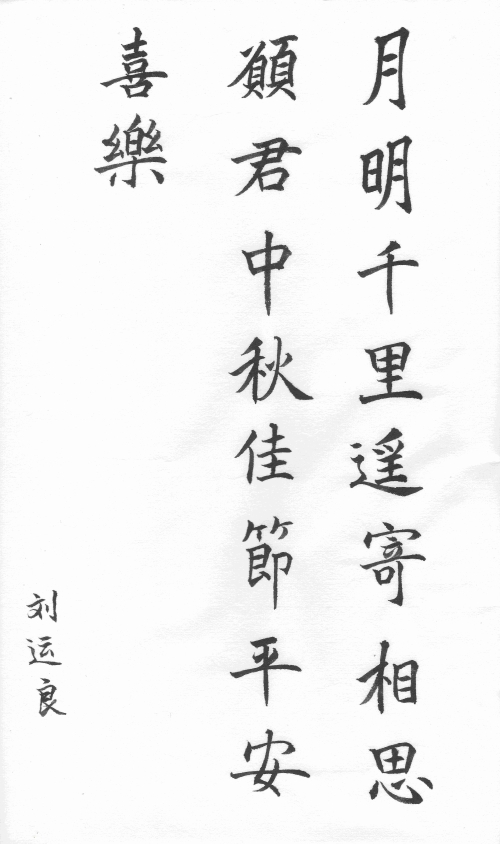 月明千里遥寄相思
願君中秋佳節平安
喜樂
刘运良